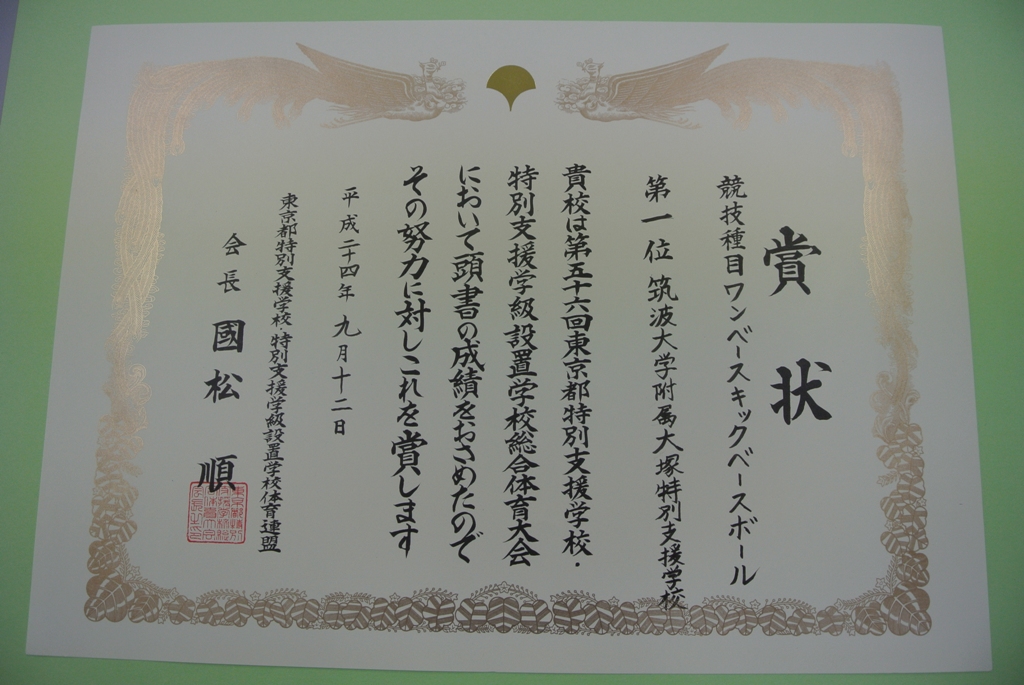 賞状
競技種目ワンベースキックベースボール
第一位 筑波大学附属大塚特別支援学校
貴校は第五十六回東京都特別支援学校・
特別支援学級設置学校総合体育大会
において頭書の成績をおさめたので
その努力に対しこれを賞します
平成二十四年 九月十二日
東京都特別支援学校・特別支援学級設置学校体育連盟
会長 國松 順